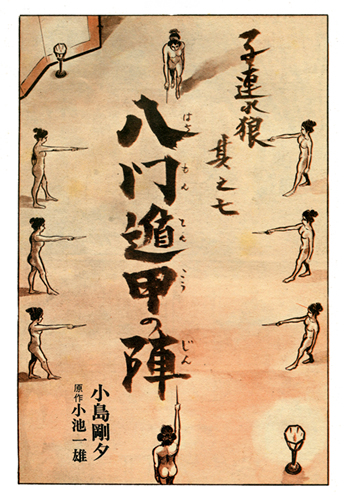 子連れ狼
其之七
八門遁甲の陣
はち もん とん こう じん
小島剛夕
原作 小池一雄